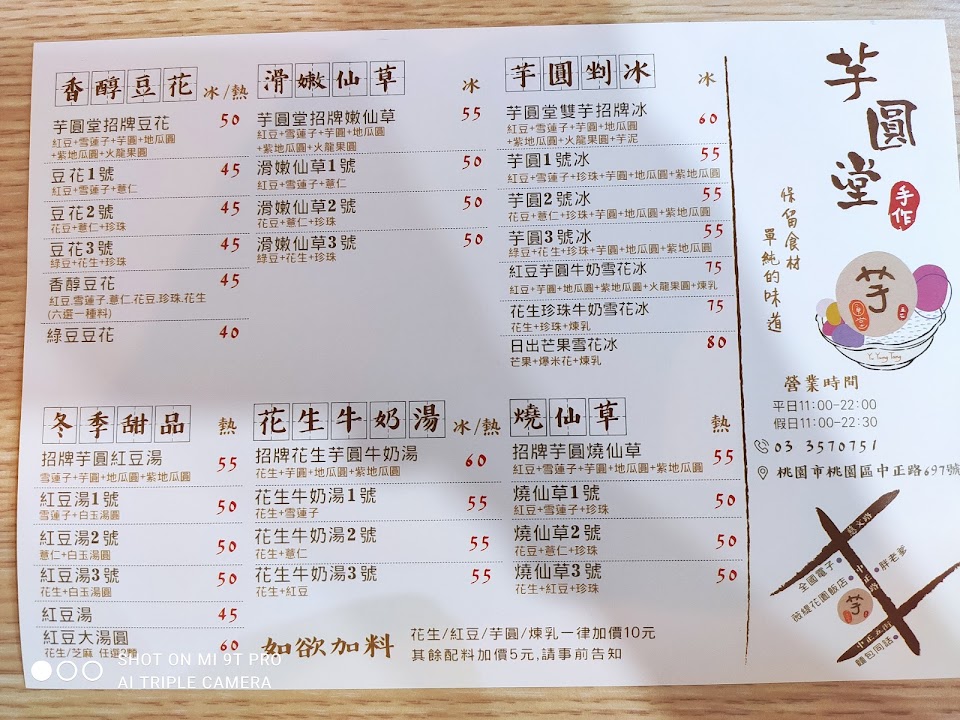 香醇豆花 冰/熱
芋圓堂招牌豆花 50
紅豆+雪蓮子+芋圓+地瓜圓
+紫地瓜圓+火龍果圓
豆花1號 45
紅豆+雪蓮子+薏仁
豆花2號 45
花豆+薏仁+珍珠
豆花3號 45
綠豆+花生+珍珠
香醇豆花 45
紅豆.雪蓮子.薏仁.花豆.珍珠.花生
(六選一種料)
綠豆豆花 40
滑嫩仙草 冰
芋圓堂招牌嫩仙草 55
紅豆+雪蓮子+芋圓+地瓜圓
+紫地瓜圓+火龍果圓
滑嫩仙草1號 50
紅豆+雪蓮子+薏仁
滑嫩仙草2號 50
花豆+薏仁+珍珠
滑嫩仙草3號 50
綠豆+花生+珍珠
芋圓剉冰 冰
芋圓堂雙芋招牌冰 60
紅豆+雪蓮子+芋圓+地瓜圓
+紫地瓜圓+火龍果圓+芋泥
芋圓1號冰 55
紅豆+雪蓮子+珍珠+芋圓+地瓜圓+紫地瓜圓
芋圓2號冰 55
花豆+薏仁+珍珠+芋圓+地瓜圓+紫地瓜圓
芋圓3號冰 55
綠豆+花生+珍珠+芋圓+地瓜圓+紫地瓜圓
紅豆芋圓牛奶雪花冰 75
紅豆+芋圓+地瓜圓+紫地瓜圓+火龍果圓+煉乳
花生珍珠牛奶雪花冰 75
花生+珍珠+煉乳
日出芒果雪花冰 80
芒果+爆米花+煉乳
冬季甜品 熱
招牌芋圓紅豆湯 55
雪蓮子+芋圓+地瓜圓+紫地瓜圓
紅豆湯1號 50
雪蓮子+白玉湯圓
紅豆湯2號 50
薏仁+白玉湯圓
紅豆湯3號 50
花生+白玉湯圓
紅豆湯 45
紅豆大湯圓 60
花生/芝麻 任選2顆
花生牛奶湯 冰/熱
招牌花生芋圓牛奶湯 60
花生+芋圓+地瓜圓+紫地瓜圓
花生牛奶湯1號 55
花生+雪蓮子
花生牛奶湯2號 55
花生+薏仁
花生牛奶湯3號 55
花生+紅豆
燒仙草 熱
招牌芋圓燒仙草 55
紅豆+雪蓮子+芋圓+地瓜圓+紫地瓜圓
燒仙草1號 50
紅豆+雪蓮子+珍珠
燒仙草2號 50
花豆+薏仁+珍珠
燒仙草3號 50
花生+紅豆+珍珠
如欲加料
花生/紅豆/芋圓/煉乳一律加價10元
其餘配料加價5元,請事前告知
芋圓堂
手作
保留食材
單純的味道
芋
Yu Yuang Tang
營業時間
平日11:00-22:00
假日11:00-22:30
03 3570751
桃園市桃園區中正路697號
慈文路
全國電子
胖老爹
中正路
薇緹花園飯店
芋
中正五街
麵包同話
SHOT ON MI 9T PRO
AI TRIPLE CAMERA